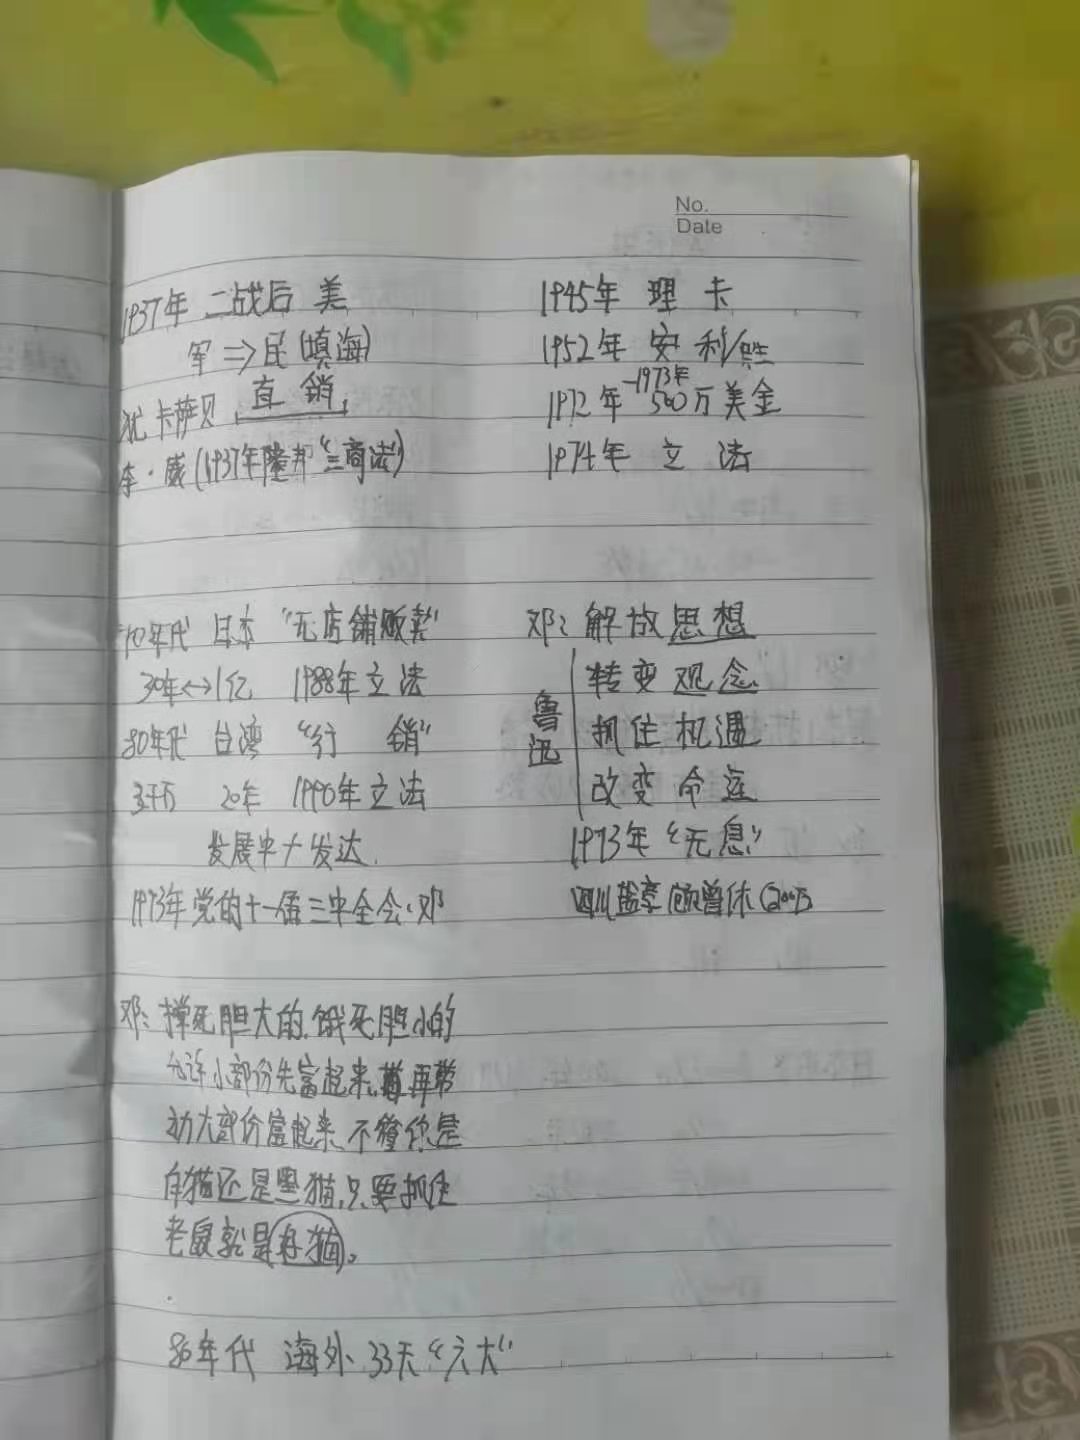 No.
Date
1937年 二战后 美
军⇒民(填海)
犹 卡萨贝 直销
李·威(1937年隆邦“三商法”)
1945年 理 卡
1952年 安利/
1972年-1973年 500万美金
1974年 立 法
70年代 日本 “无店铺贩卖”
30年↔1亿 1988年立法
80年代 台湾 “行 销”
3千万 20年 1990年立法
发展中/发达.
1973年党的十一届三中全会:邓
邓:解放思想
鲁迅
转变观念
抓住机遇
改变命运
1973年“无息”
四川
邓:撑死胆大的.饿死胆小的
允许小部份先富起来.再帮
助大部份富起来.不管你是
白猫还是黑猫,只要抓住
老鼠就是好猫。
80年代 海外 33天“六大”